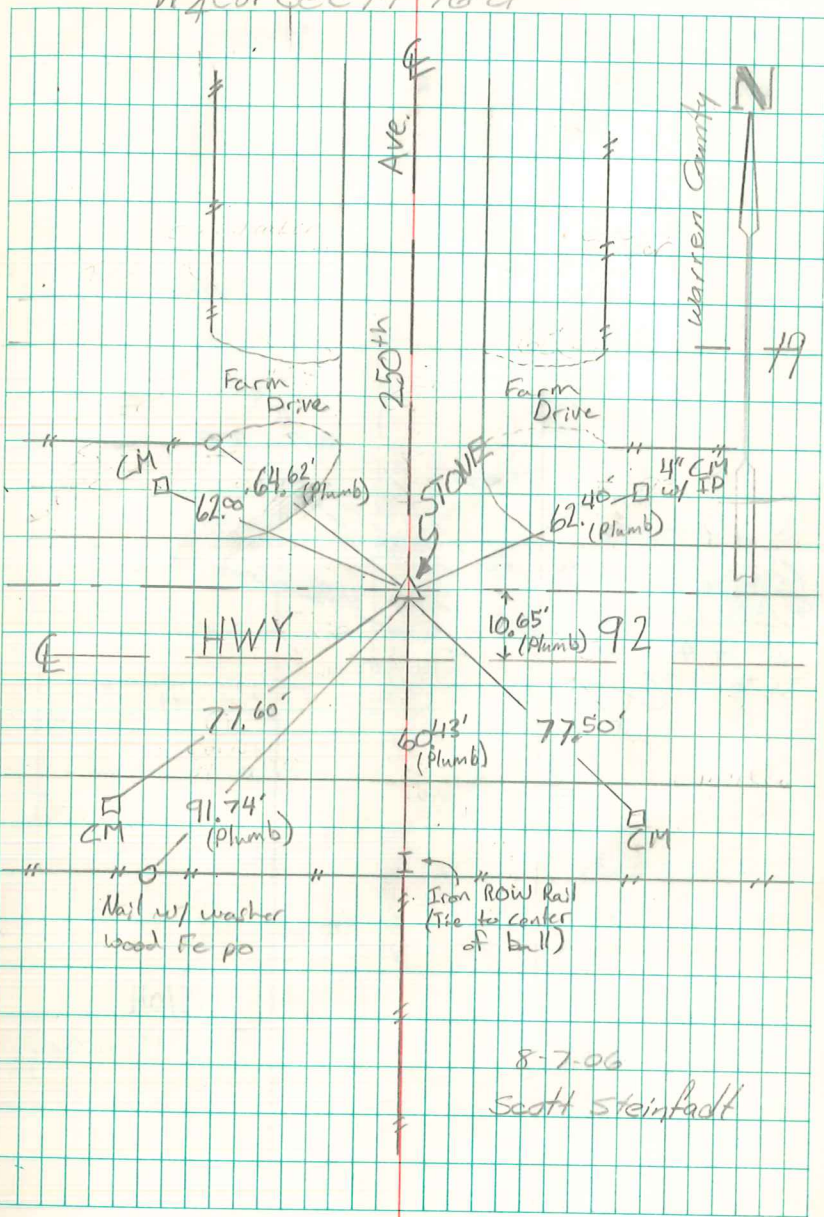 ℄
Ave.
250th
Warren County
N
19
Farm
Drive
Farm
Drive
CM
64.62'
(Plumb)
62.00
STONE
62.40'
(Plumb)
4" CM
w/ IP
℄
HWY
10.65'
(Plumb)
92
77.60'
60.43'
(Plumb)
77.50'
CM
91.74'
(Plumb)
CM
Nail w/ washer
wood Fe po
I
Iron ROW Rail
(Tie to center
of ball)
8-7-06
Scott Steinfadt